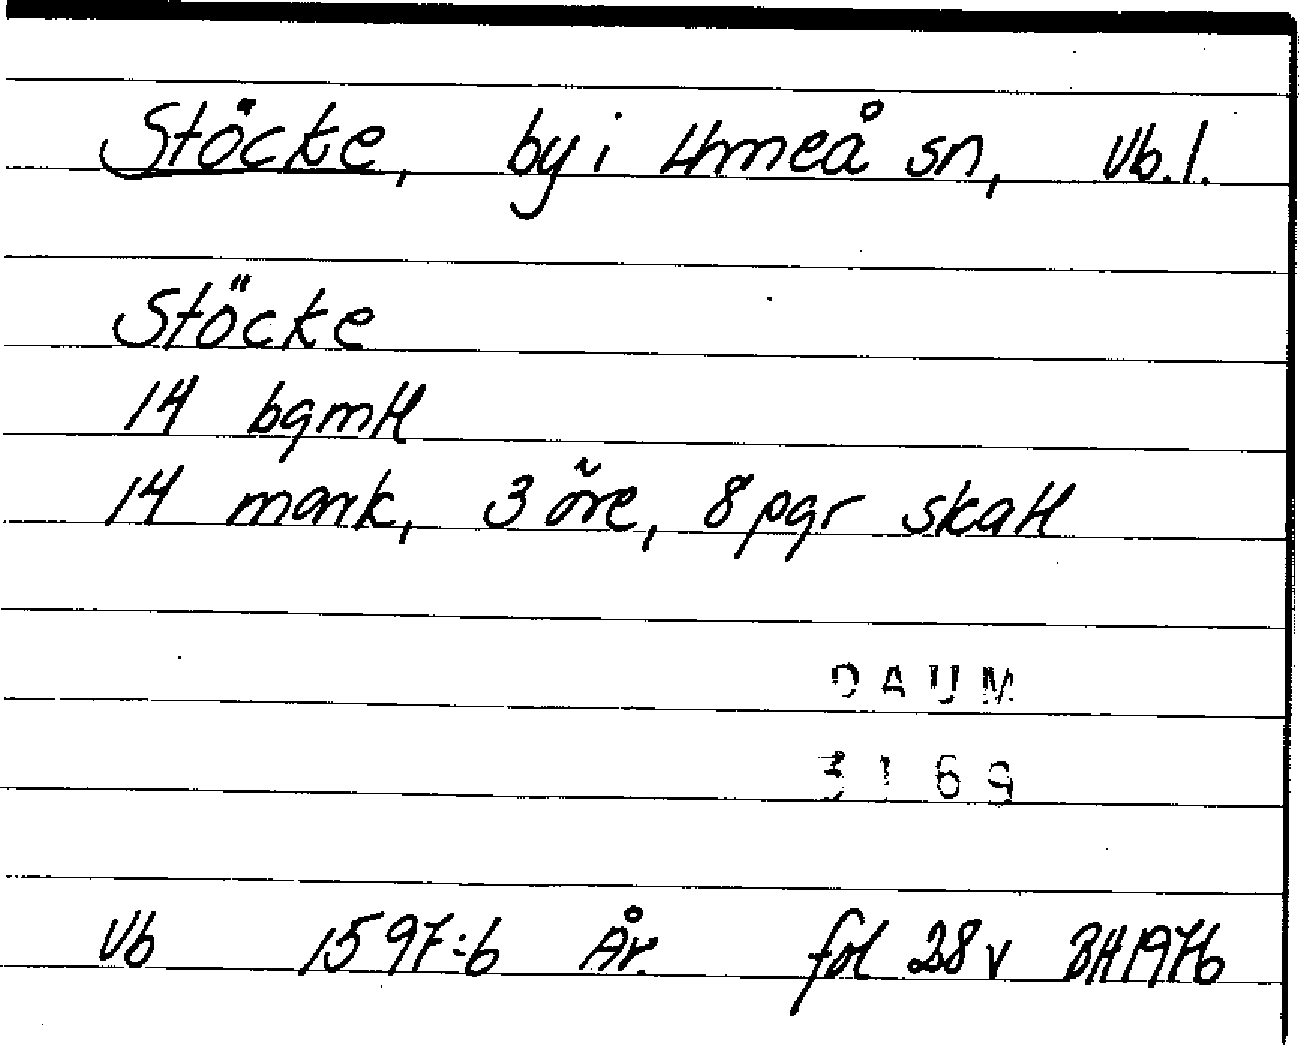 Stöcke, by i Umeå sn, Vb. l.
Stöcke
14 bgmtl
14 mark, 3 öre, 8 pgr skatt
DAUM
3169
Vb 1597:6 År. fol 28 v BH 1976